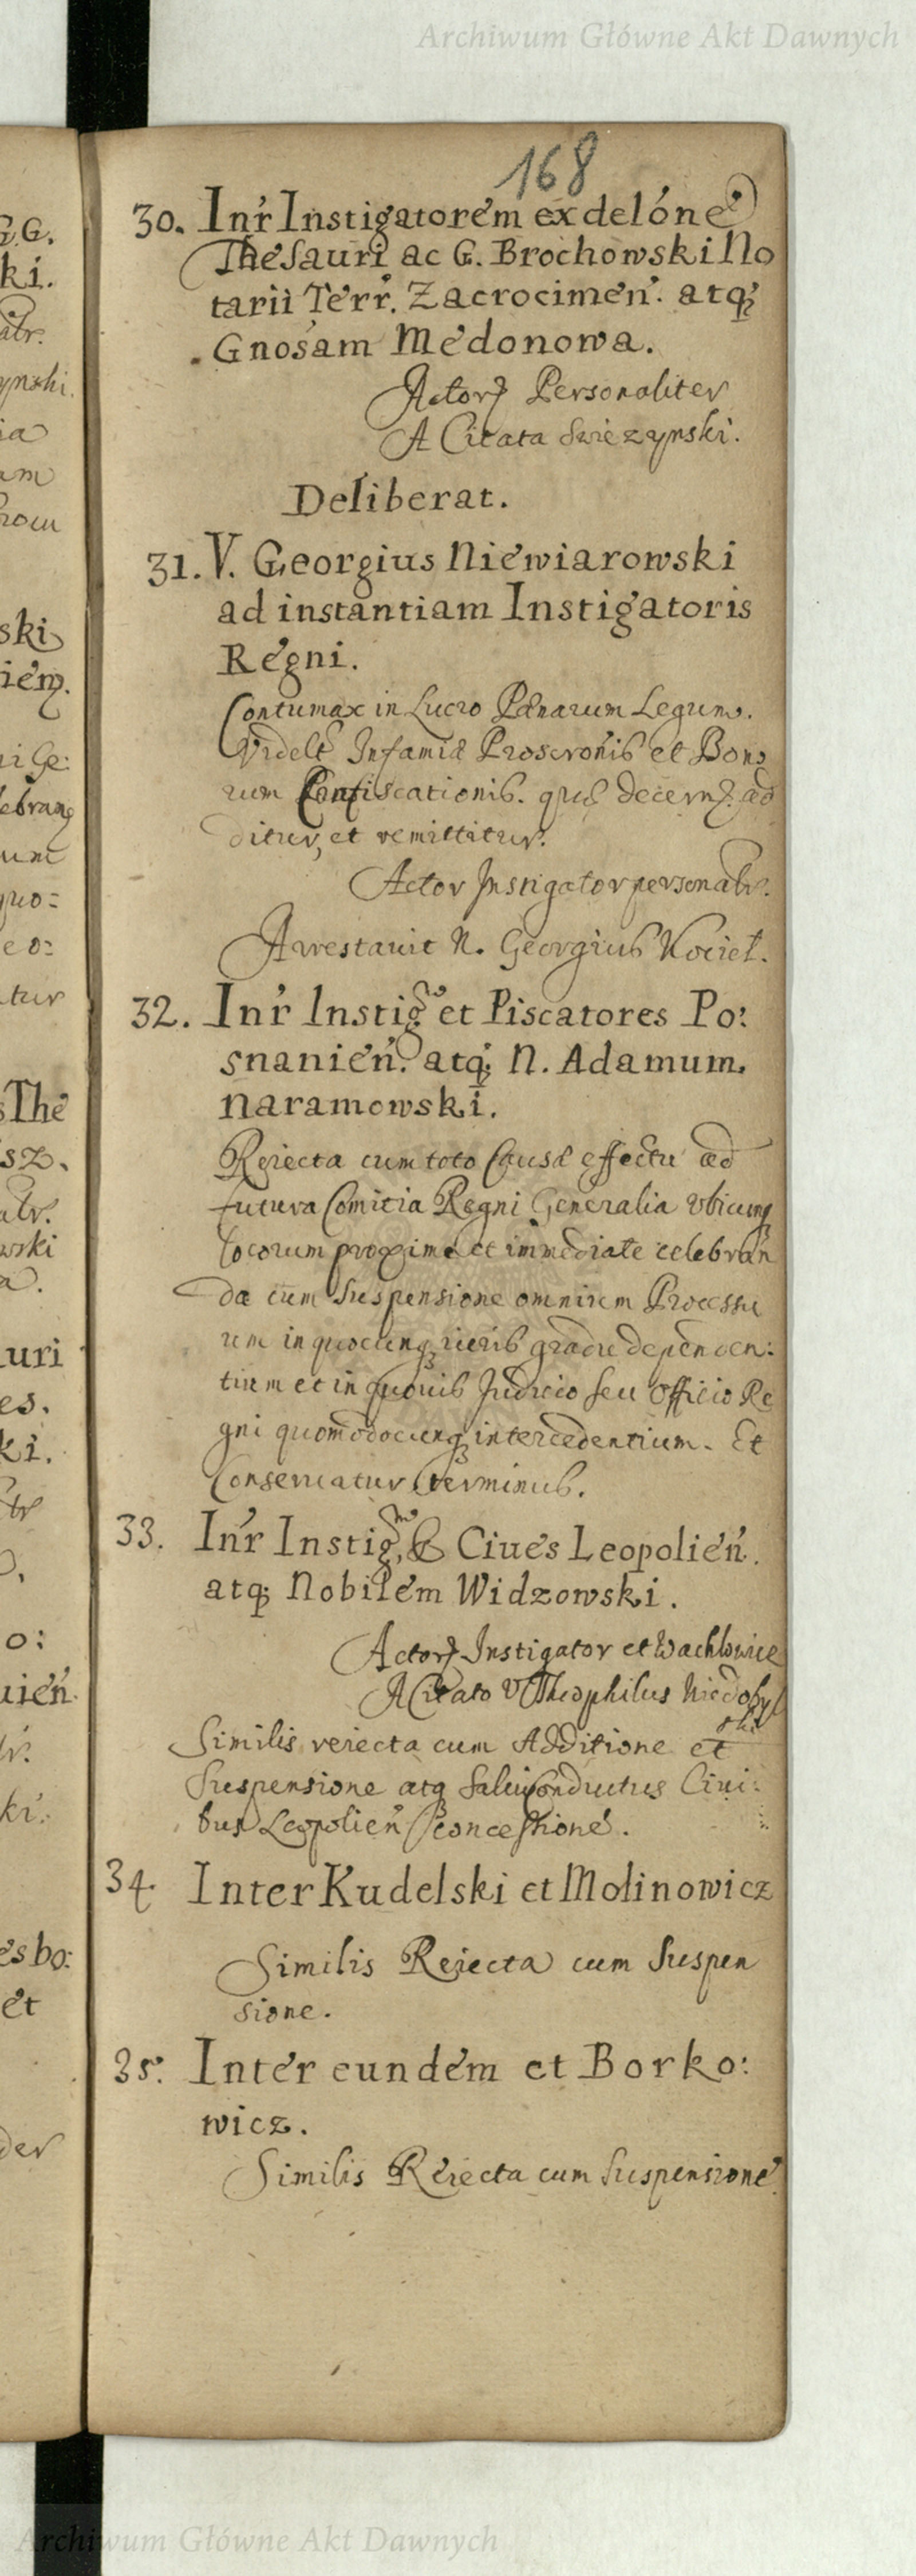 Archiwum Główne Akt Dawnych
168
30. Inr Instigatorem ex delóne
Thesauri ac G. Brochowski No
tarii Terr. Zacrocimen. atq;
Gnosam Medonowa.
Actor Personaliter
A Citata Swiezynski.
Deliberat.
31. V. Georgius Niewiarowski
ad instantiam Instigatoris
Regni.
Contumax in Lucro Pænarum Legum.
Videlt Infamiæ Proscronis et Bono
rum Confiscationis. quæ decern ad
ditur, et remittitur.
Actor Instigator personalr.
Arrestavit N. Georgius Kociel.
32. Inr Instig et Piscatores Po:
snanien. atq; N. Adamum
Naramowski.
Reiecta cum toto Causæ effectu ad
futura Comitia Regni Generalia vbicunq
locorum proxime et immediate celebran
da cum Suspensione omnium Processu
um in quocunq iuris gradu dependen:
tium et in quouis Judicio seu Officio Re
gni quomodocunq intercedentium. Et
Conseruatur terminus.
33. Inr Instig, & Ciues Leopolien.
atq; Nobilem Widzowski.
Actor Instigator et Wachlowicz
A Citato V Theophilus Niedoby
ski
Similis reiecta cum Additione et
Suspensione atq Saluiconductus Ciui:
bus Leopolien concessione.
34. Inter Kudelski et Molinowicz
Similis Reiecta cum Suspen
sione.
35. Inter eundem et Borko:
wicz.
Similis Reiecta cum Suspensione
G.G.
ki.
ski
The
sz.
uri
es.
ki.
et
Archiwum Główne Akt Dawnych